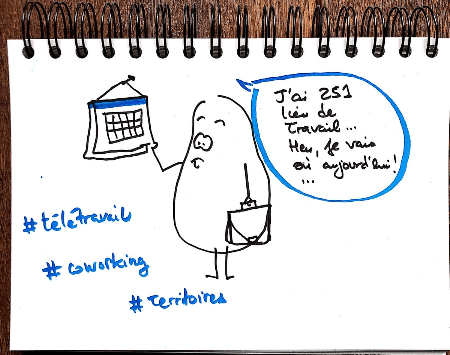 J'ai 251
lieu de
travail...
Heu, Je vais
où aujourd'hui!
...
#télétravail
#coworking
#territoires